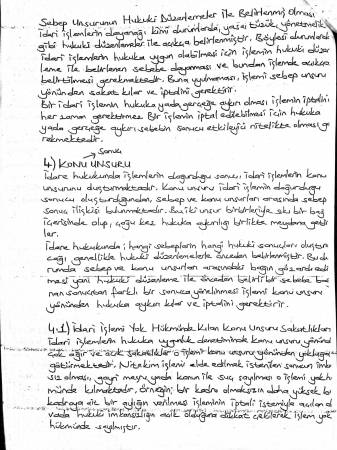 Sebep Unsurunun Hukuki Düzenlemeler ile Belirlenmiş Olması
İdari işlemlerin dayanağı, kimi durumlarda, yasa, tüzük, yönetmelik
gibi hukuki düzenlemeler ile açıkça belirlenmiştir. Böylesi durumlarda
idari işlemlerin hukuka uygun olabilmesi için işlemin hukuki düzen
leme ile belirlenen sebebe dayanması ve bundan işlemde açıkça
belirtilmesi gerekmektedir. Buna uyulmaması, işlemi sebep unsuru
yönünden sakatlar ve iptalini gerektirir.
Bir idari işlemin hukuka yada gerçeğe aykırı olması, işlemin iptalini
her zaman gerektirmez. Bir işlemin iptal edilebilmesi için hukuka
yada gerçeğe aykırı sebebin sonucu etkileyici nitelikte olması ge
rekmektedir.
Sonuç
4) KONU UNSURU
İdare hukukunda işlemlerin doğurduğu sonuç, idari işlemlerin konu
unsurunu oluşturmaktadır. Konu unsuru idari işlemin doğurduğu
sonucu oluşturduğundan, sebep ve konu unsurları arasında sebep
sonuç ilişkisi bulunmaktadır. Bu iki unsur birbirleriyle sıkı bir bağ
içerisinde olup, çoğu kez hukuka aykırılığı birlikte meydana getir
ler.
İdare hukukunda; hangi sebeplerin hangi hukuki sonuçları oluştura
cağı genellikle hukuki düzenlemelerle önceden belirlenmiştir. Bu du
rumda sebep ve konu unsurları arasındaki bağın göz ardı edil
mesi yani hukuki düzenleme ile önceden belirli bir sebebe daya
nan sonuçtan farklı bir sonuca yönelinmesi işlemi konu unsuru
yönünden hukuka aykırı kılar ve iptalini gerektirir.
4.1) İdari İşlemi Yok Hükmünde Kılan Konu Unsuru Sakatlıkları
İdari işlemlerin hukuka uygunluk denetiminde konu unsuru yönünden
çok ağır ve açık sakatlıklar o işlemi konu unsuru yönünden yokluğa
götürmektedir. Nitekim işlemle elde edilmek istenilen sonucun imkan
sız olması, gayri meşru yada kanun ile suç sayılması o işlemi yok hük
münde kılmaktadır. Örneğin; bir kadro olmaksızın daha yüksek bir
kadroya ait bir aylığın verilmesi işleminin iptali istemiyle açılan da
vada hukuki imkansızlığın açık olduğuna dikkat çekilerek işlem yok
hükmünde sayılmıştır.